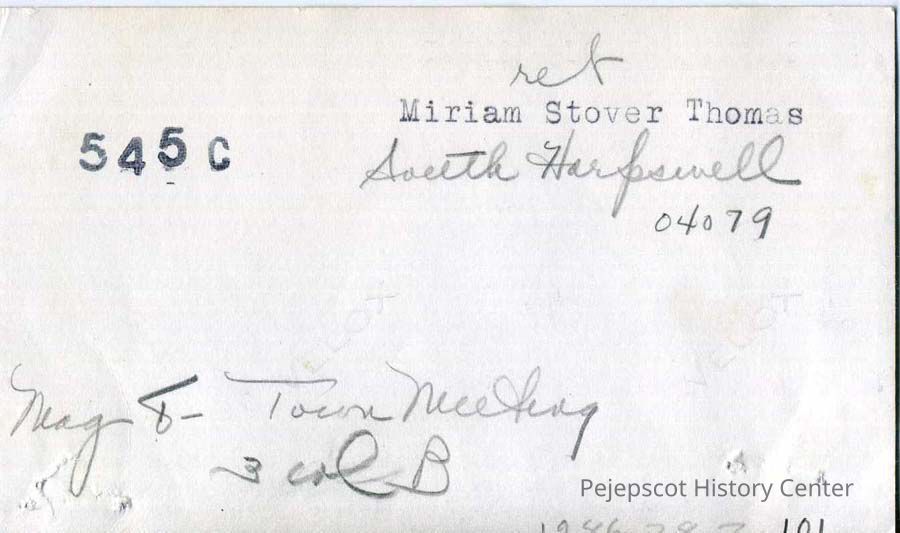 ret
Miriam Stover Thomas
545 C
South Harpswell
04079
VELOT VELOT
Mag 8- Town Meeting
3 col B
Pejepscot History Center
101